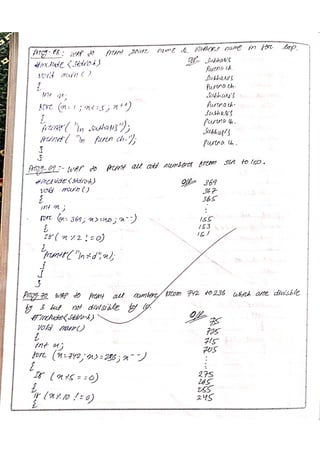 Prog-68:- WAP to print your name & fathers name in for loop.
#include<stdio.h> O/P Subhasis
void main() Purna ch.
{ Subhasis
int x; Purna ch.
for (x=1; x<=5; x++) Subhasis
{ Purna ch.
printf("\n Subhasis"); Subhasis
printf("\n Purna ch."); Purna ch.
} Subhasis
} Purna ch.
Prog-69:- WAP to print all odd numbers from 369 to 150.
#include<stdio.h> O/P 369
void main() 367
{ 365
int x;
for (x=369; x>=150; x--) 155
{ 153
If (x%2!=0) 151
{
printf("\n%d",x);
}
}
}
Prog-70 WAP to print all numbers from 742 to 236 which are divisible
by 5 but not divisible by 10.
#include<stdio.h> O/P
void main() 725
{ 715
int x; 705
for (x=742; x>=236; x--)
{ 275
If (x%5==0) 265
{ 255
if (x%10!=0) 245
{